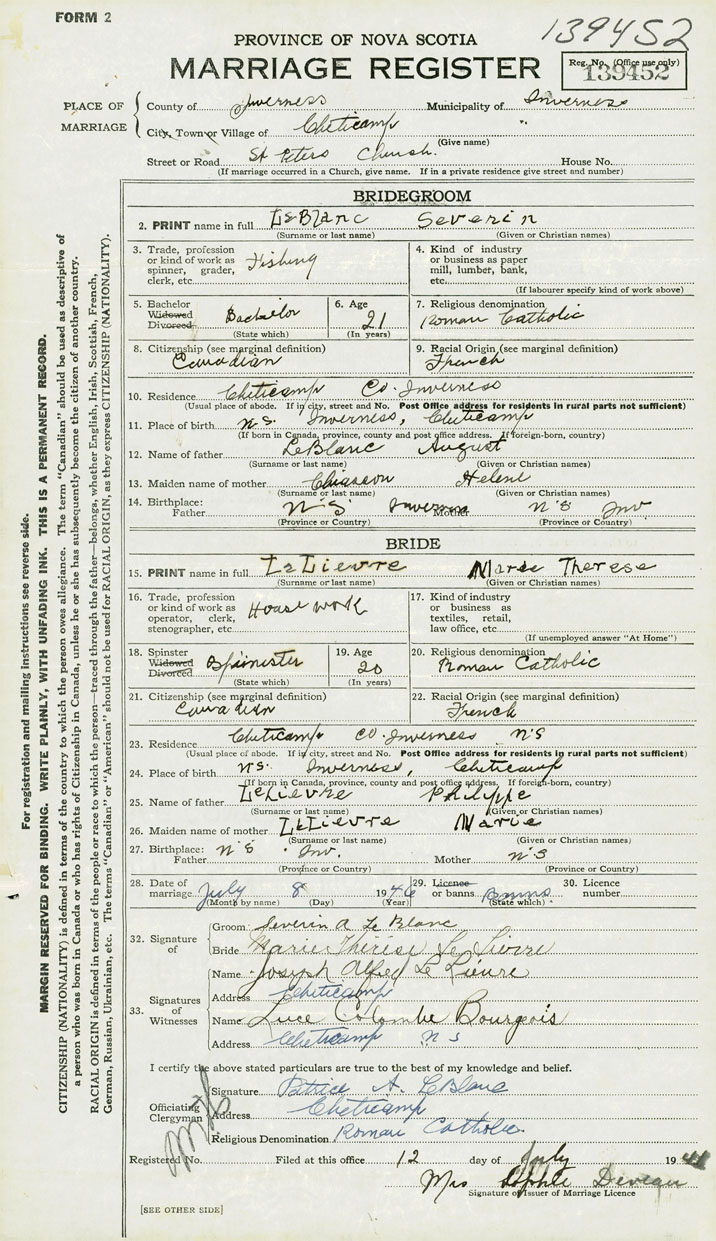 FORM 2
139452
PROVINCE OF NOVA SCOTIA
MARRIAGE REGISTER
Reg. No. (Office use only)
139452
PLACE OF MARRIAGE
County of Inverness Municipality of Inverness
City, Town or Village of Cheticamp "
(Give name)
Street or Road St Peters Church. House No.
(If marriage occurred in a Church, give name. If in a private residence give street and number)
BRIDEGROOM
2. PRINT name in full LeBlanc Severin
(Surname or last name) (Given or Christian names)
3. Trade, profession or kind of work as spinner, grader, clerk, etc. Fishing
4. Kind of industry or business as paper mill, lumber, bank, etc.
(If labourer specify kind of work above)
5. Bachelor Widowed Divorced Bachelor
(State which)
6. Age 21
(In years)
7. Religious denomination Roman Catholic
8. Citizenship (see marginal definition) Canadian
9. Racial Origin (see marginal definition) French
10. Residence Cheticamp Co. Inverness
(Usual place of abode. If in city, street and No. Post Office address for residents in rural parts not sufficient)
11. Place of birth N.S. Inverness, Cheticamp
(If born in Canada, province, county and post office address. If foreign-born, country)
12. Name of father LeBlanc August
(Surname or last name) (Given or Christian names)
13. Maiden name of mother Chiasson Helene
(Surname or last name) (Given or Christian names)
14. Birthplace: Father N.S. Inverness Mother N S Inv
(Province or Country) (Province or Country)
BRIDE
15. PRINT name in full LeLievre Marie Therese
(Surname or last name) (Given or Christian names)
16. Trade, profession or kind of work as operator, clerk, stenographer, etc. House work
17. Kind of industry or business as textiles, retail, law office, etc.
(If unemployed answer "At Home")
18. Spinster Widowed Divorced Spinister
(State which)
19. Age 20
(In years)
20. Religious denomination Roman Catholic
21. Citizenship (see marginal definition) Canadian
22. Racial Origin (see marginal definition) French
23. Residence Cheticamp Co Inverness N S
(Usual place of abode. If in city, street and No. Post Office address for residents in rural parts not sufficient)
24. Place of birth N.S. Inverness, Cheticamp
(If born in Canada, province, county and post office address. If foreign-born, country)
25. Name of father LeLievre Philippe
(Surname or last name) (Given or Christian names)
26. Maiden name of mother LeLievre Marie
(Surname or last name) (Given or Christian names)
27. Birthplace: Father N S Inv. Mother N S
(Province or Country) (Province or Country)
28. Date of marriage July 8 1946
(Month by name) (Day) (Year)
29. Licence or banns Banns
(State which)
30. Licence number
32. Signature of
Groom Severin A Le Blanc
Bride Marie Thérèse Le Lievre
33. Signatures of Witnesses
Name Joseph Alfred Le Lievre
Address Cheticamp
Name Luce Colombe Bourgeois
Address Cheticamp N S
I certify the above stated particulars are true to the best of my knowledge and belief.
Officiating Clergyman
Signature Patrice A. LeBlanc
Address Cheticamp
Religious Denomination Roman Catholic
Registered No. Filed at this office 12 day of July 19
Mrs Sophie Deveau
Signature of Issuer of Marriage Licence
[SEE OTHER SIDE]
For registration and mailing instructions see reverse side.
MARGIN RESERVED FOR BINDING. WRITE PLAINLY, WITH UNFADING INK. THIS IS A PERMANENT RECORD.
CITIZENSHIP (NATIONALITY) is defined in terms of the country to which the person owes allegiance. The term "Canadian" should be used as descriptive of
a person who was born in Canada or who has rights of Citizenship in Canada, unless he or she has subsequently become the citizen of another country.
RACIAL ORIGIN is defined in terms of the people or race to which the person—traced through the father—belongs, whether English, Irish, Scottish, French,
German, Russian, Ukrainian, etc. The terms "Canadian" or "American" should not be used for RACIAL ORIGIN, as they express CITIZENSHIP (NATIONALITY).